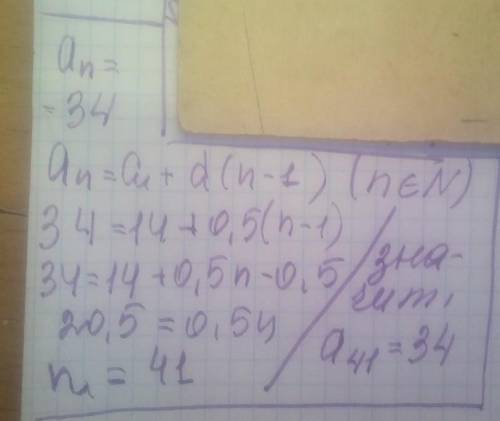 aₙ =
= 34
aₙ = a₁ + d(n-1) (n∈N)
34 = 14 + 0,5(n-1)
34 = 14 + 0,5n - 0,5
20,5 = 0,5n
n = 41
зна-
чит,
a₄₁ = 34